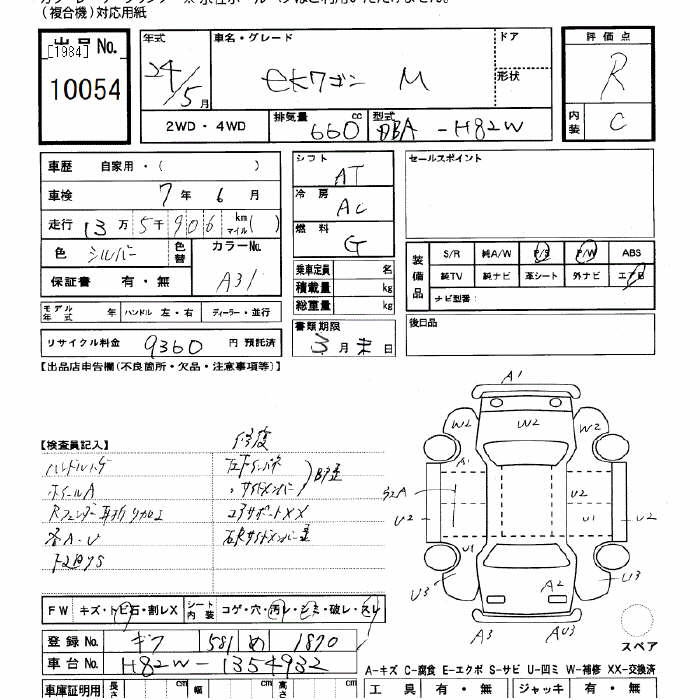 (複合機)対応用紙
出品No.
[1984]
10054
年式
24/5月
車名・グレード
ekワゴン M
ドア
形状
2WD・4WD
排気量 660 cc
型式 DBA-H82W
評価点
R
内装 C
車歴 自家用・( )
車検 7年 6月
走行 13万 5千 906 km マイル( )
色 シルバー
色替
カラーNo. A31
保証書 有・無
シフト AT
冷房 AC
燃料 G
乗車定員 名
積載量 kg
総重量 kg
書類期限
3月末日
セールスポイント
装備品
S/R 純A/W P/S P/W ABS
純TV 純ナビ 革シート 外ナビ エアB
ナビ型番:
後日品
モデル年式 年 ハンドル 左・右 ディーラー・並行
リサイクル料金 9360 円 預託済
【出品店申告欄(不良箇所・欠品・注意事項等)】
【検査員記入】
修復
ハンドルハゲ
ホイールA
各A-U
コアサポートXX
A1
W2 W2 W2
A1
U2 U2 U2
U1 U1
U3 U3
A2
A3 AU3
スペア
FW キズ・トビ石・割レX
シート内装 コゲ・穴・汚レ・シミ・破レ・スレ
登録No. ギフ 581 め 1870
車台No. H82W-1354932
A-キズ C-腐食 E-エクボ S-サビ U-凹ミ W-補修 XX-交換済
車庫証明用 長さ cm 幅 cm 高さ cm
工具 有・無 ジャッキ 有・無